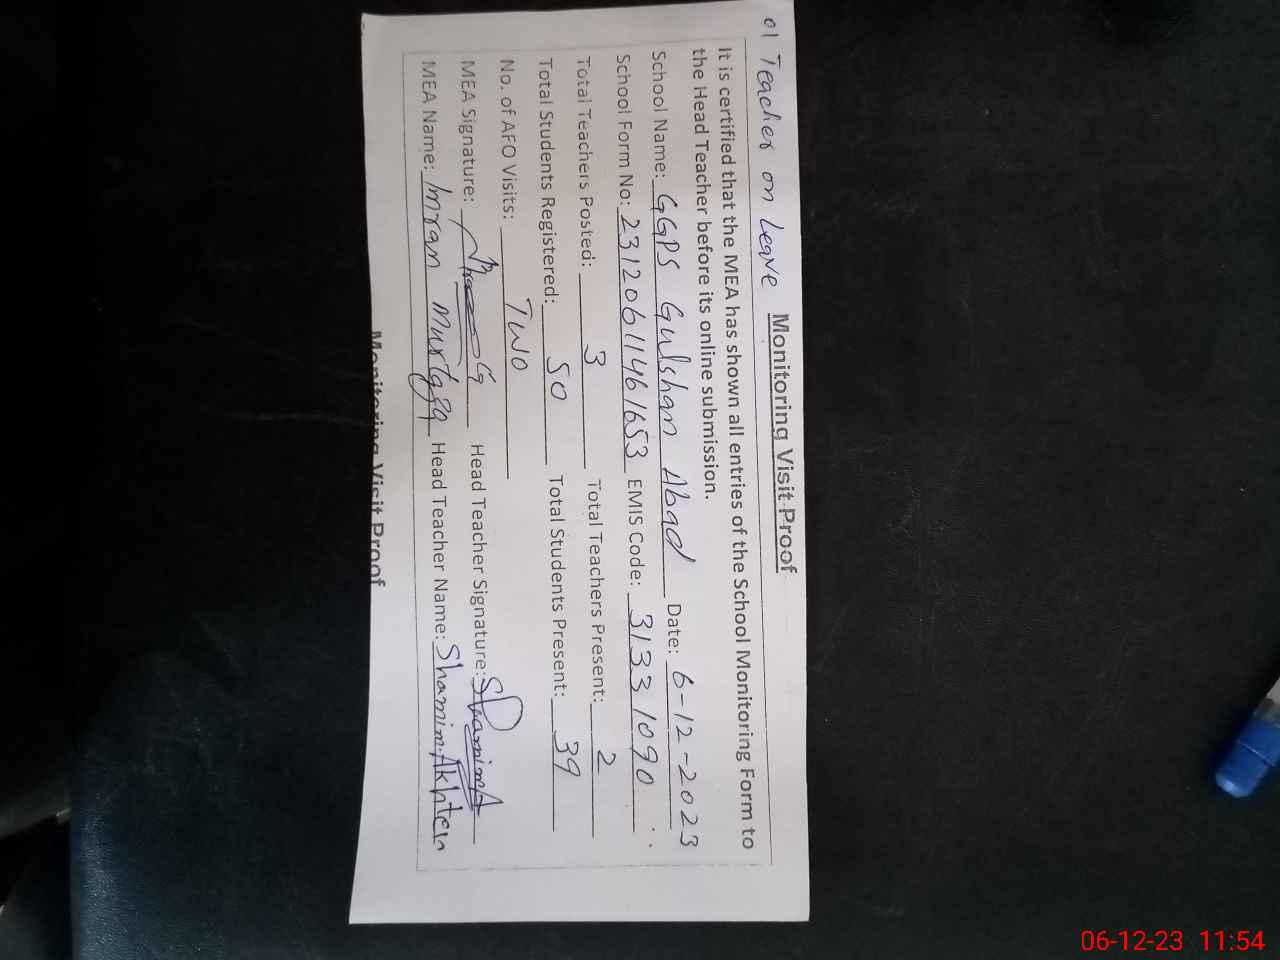 01 Teacher on Leave
Monitoring Visit Proof
It is certified that the MEA has shown all entries of the School Monitoring Form to
the Head Teacher before its online submission.
School Name: GGPS Gulshan Abad Date: 6-12-2023
School Form No: 23120611461653 EMIS Code: 31331090
Total Teachers Posted: 3 Total Teachers Present: 2
Total Students Registered: 50 Total Students Present: 39
No. of AFO Visits: Two
MEA Signature: Head Teacher Signature: ShamimA
MEA Name: Imran Murtaza Head Teacher Name: Shamim Akhter
Monitoring Visit Proof
06-12-23 11:54